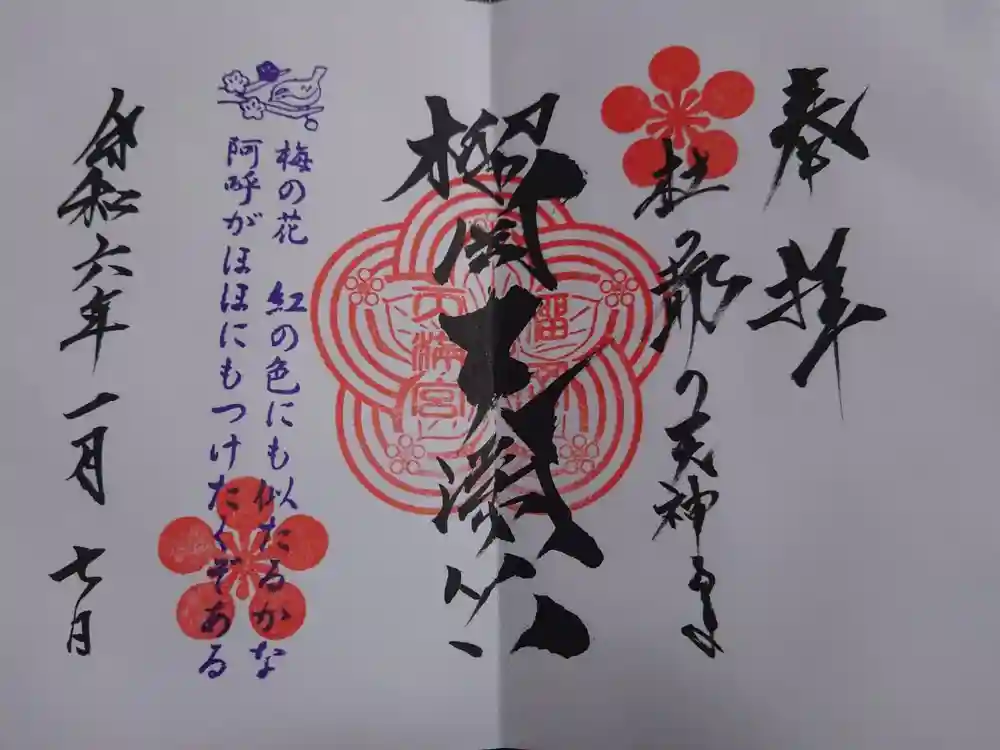 奉拝
杜の都の天神さま
榴岡天満宮
榴岡
天満宮
梅の花 紅の色にも似たるかな
阿呼がほほにもつけたくぞある
令和六年一月七日